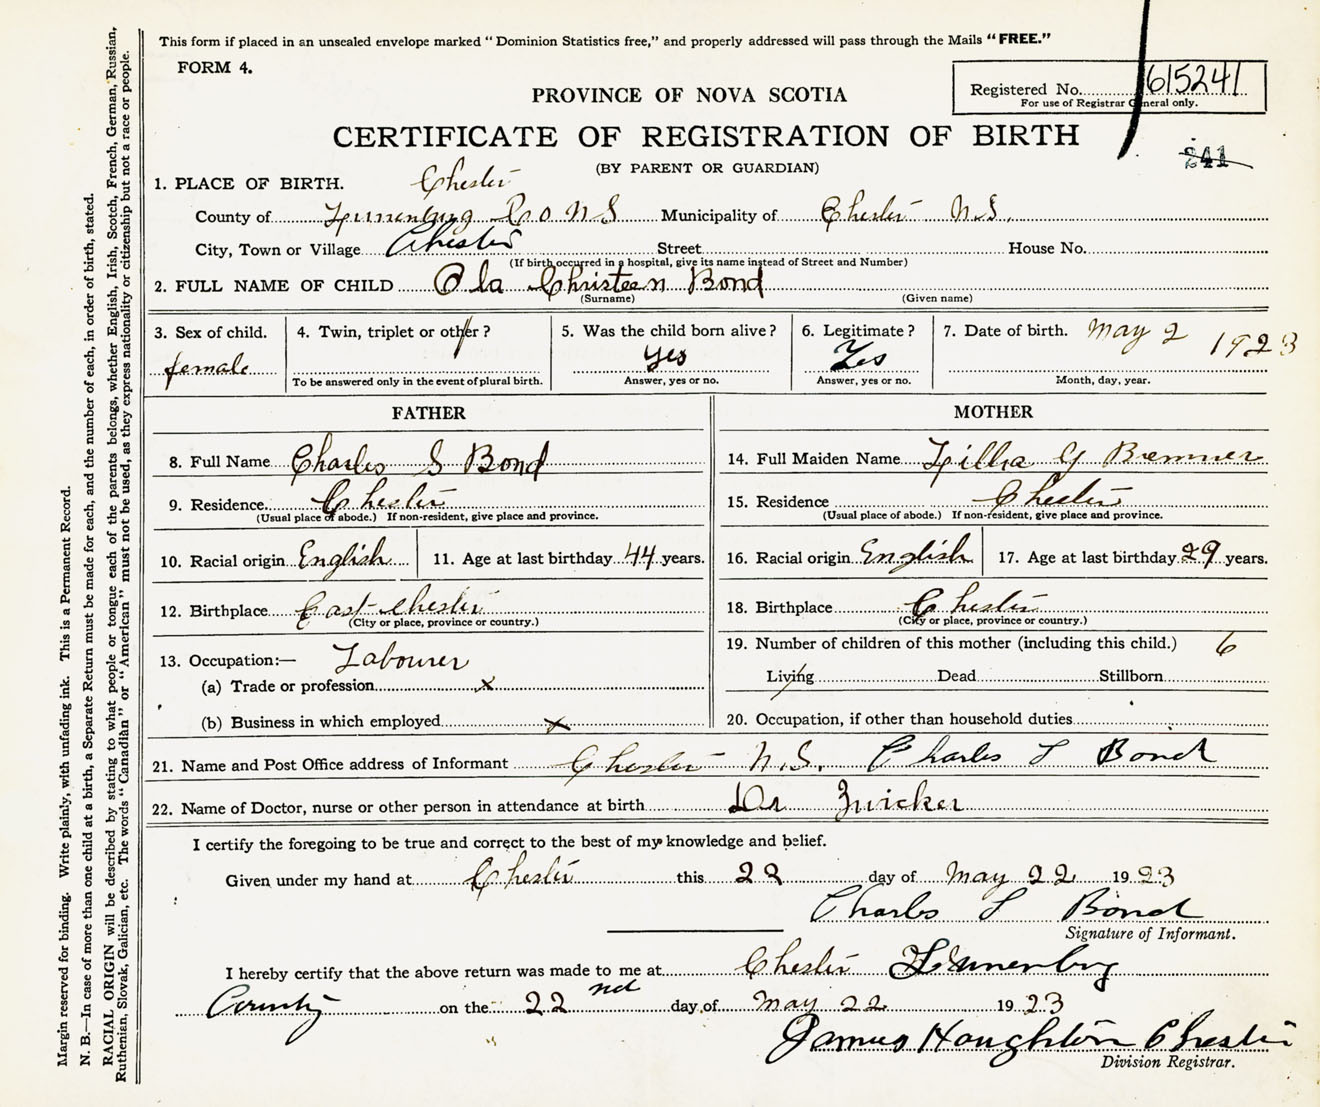 This form if placed in an unsealed envelope marked "Dominion Statistics free," and properly addressed will pass through the Mails "FREE."
FORM 4.
Registered No. 615241
For use of Registrar General only.
PROVINCE OF NOVA SCOTIA
CERTIFICATE OF REGISTRATION OF BIRTH
241
(BY PARENT OR GUARDIAN)
1. PLACE OF BIRTH. Chester
County of Lunenburg Co N S Municipality of Chester N.S.
City, Town or Village Chester Street House No.
(If birth occurred in a hospital, give its name instead of Street and Number)
2. FULL NAME OF CHILD Ola Christeen Bond
(Surname) (Given name)
3. Sex of child. 4. Twin, triplet or other? 5. Was the child born alive? 6. Legitimate? 7. Date of birth. May 2 1923
female yes Yes
To be answered only in the event of plural birth. Answer, yes or no. Answer, yes or no. Month, day, year.
FATHER MOTHER
8. Full Name Charles S Bond 14. Full Maiden Name Bremner
9. Residence Chester 15. Residence Chester
(Usual place of abode.) If non-resident, give place and province. (Usual place of abode.) If non-resident, give place and province.
10. Racial origin English 11. Age at last birthday 44 years. 16. Racial origin English 17. Age at last birthday 29 years.
12. Birthplace East Chester 18. Birthplace Chester
(City or place, province or country.) (City or place, province or country.)
19. Number of children of this mother (including this child.) 6
13. Occupation:— Labourer
Living Dead Stillborn
(a) Trade or profession x
(b) Business in which employed x 20. Occupation, if other than household duties
21. Name and Post Office address of Informant Chester N.S. Charles S Bond
22. Name of Doctor, nurse or other person in attendance at birth Dr Zwicker
I certify the foregoing to be true and correct to the best of my knowledge and belief.
Given under my hand at Chester this 22 day of May 22 1923
Charles S Bond
Signature of Informant.
I hereby certify that the above return was made to me at Chester Lunenburg
County on the 22nd day of May 22 1923
James Houghton Chester
Division Registrar.
Margin reserved for binding. Write plainly, with unfading ink. This is a Permanent Record.
N. B.—In case of more than one child at a birth, a Separate Return must be made for each, and the number of each, in order of birth, stated.
RACIAL ORIGIN will be described by stating to what people or tongue each of the parents belongs, whether English, Irish, Scotch, French, German, Russian,
Ruthenian, Slovak, Galician, etc. The words "Canadian" or "American" must not be used, as they express nationality or citizenship but not a race or people.